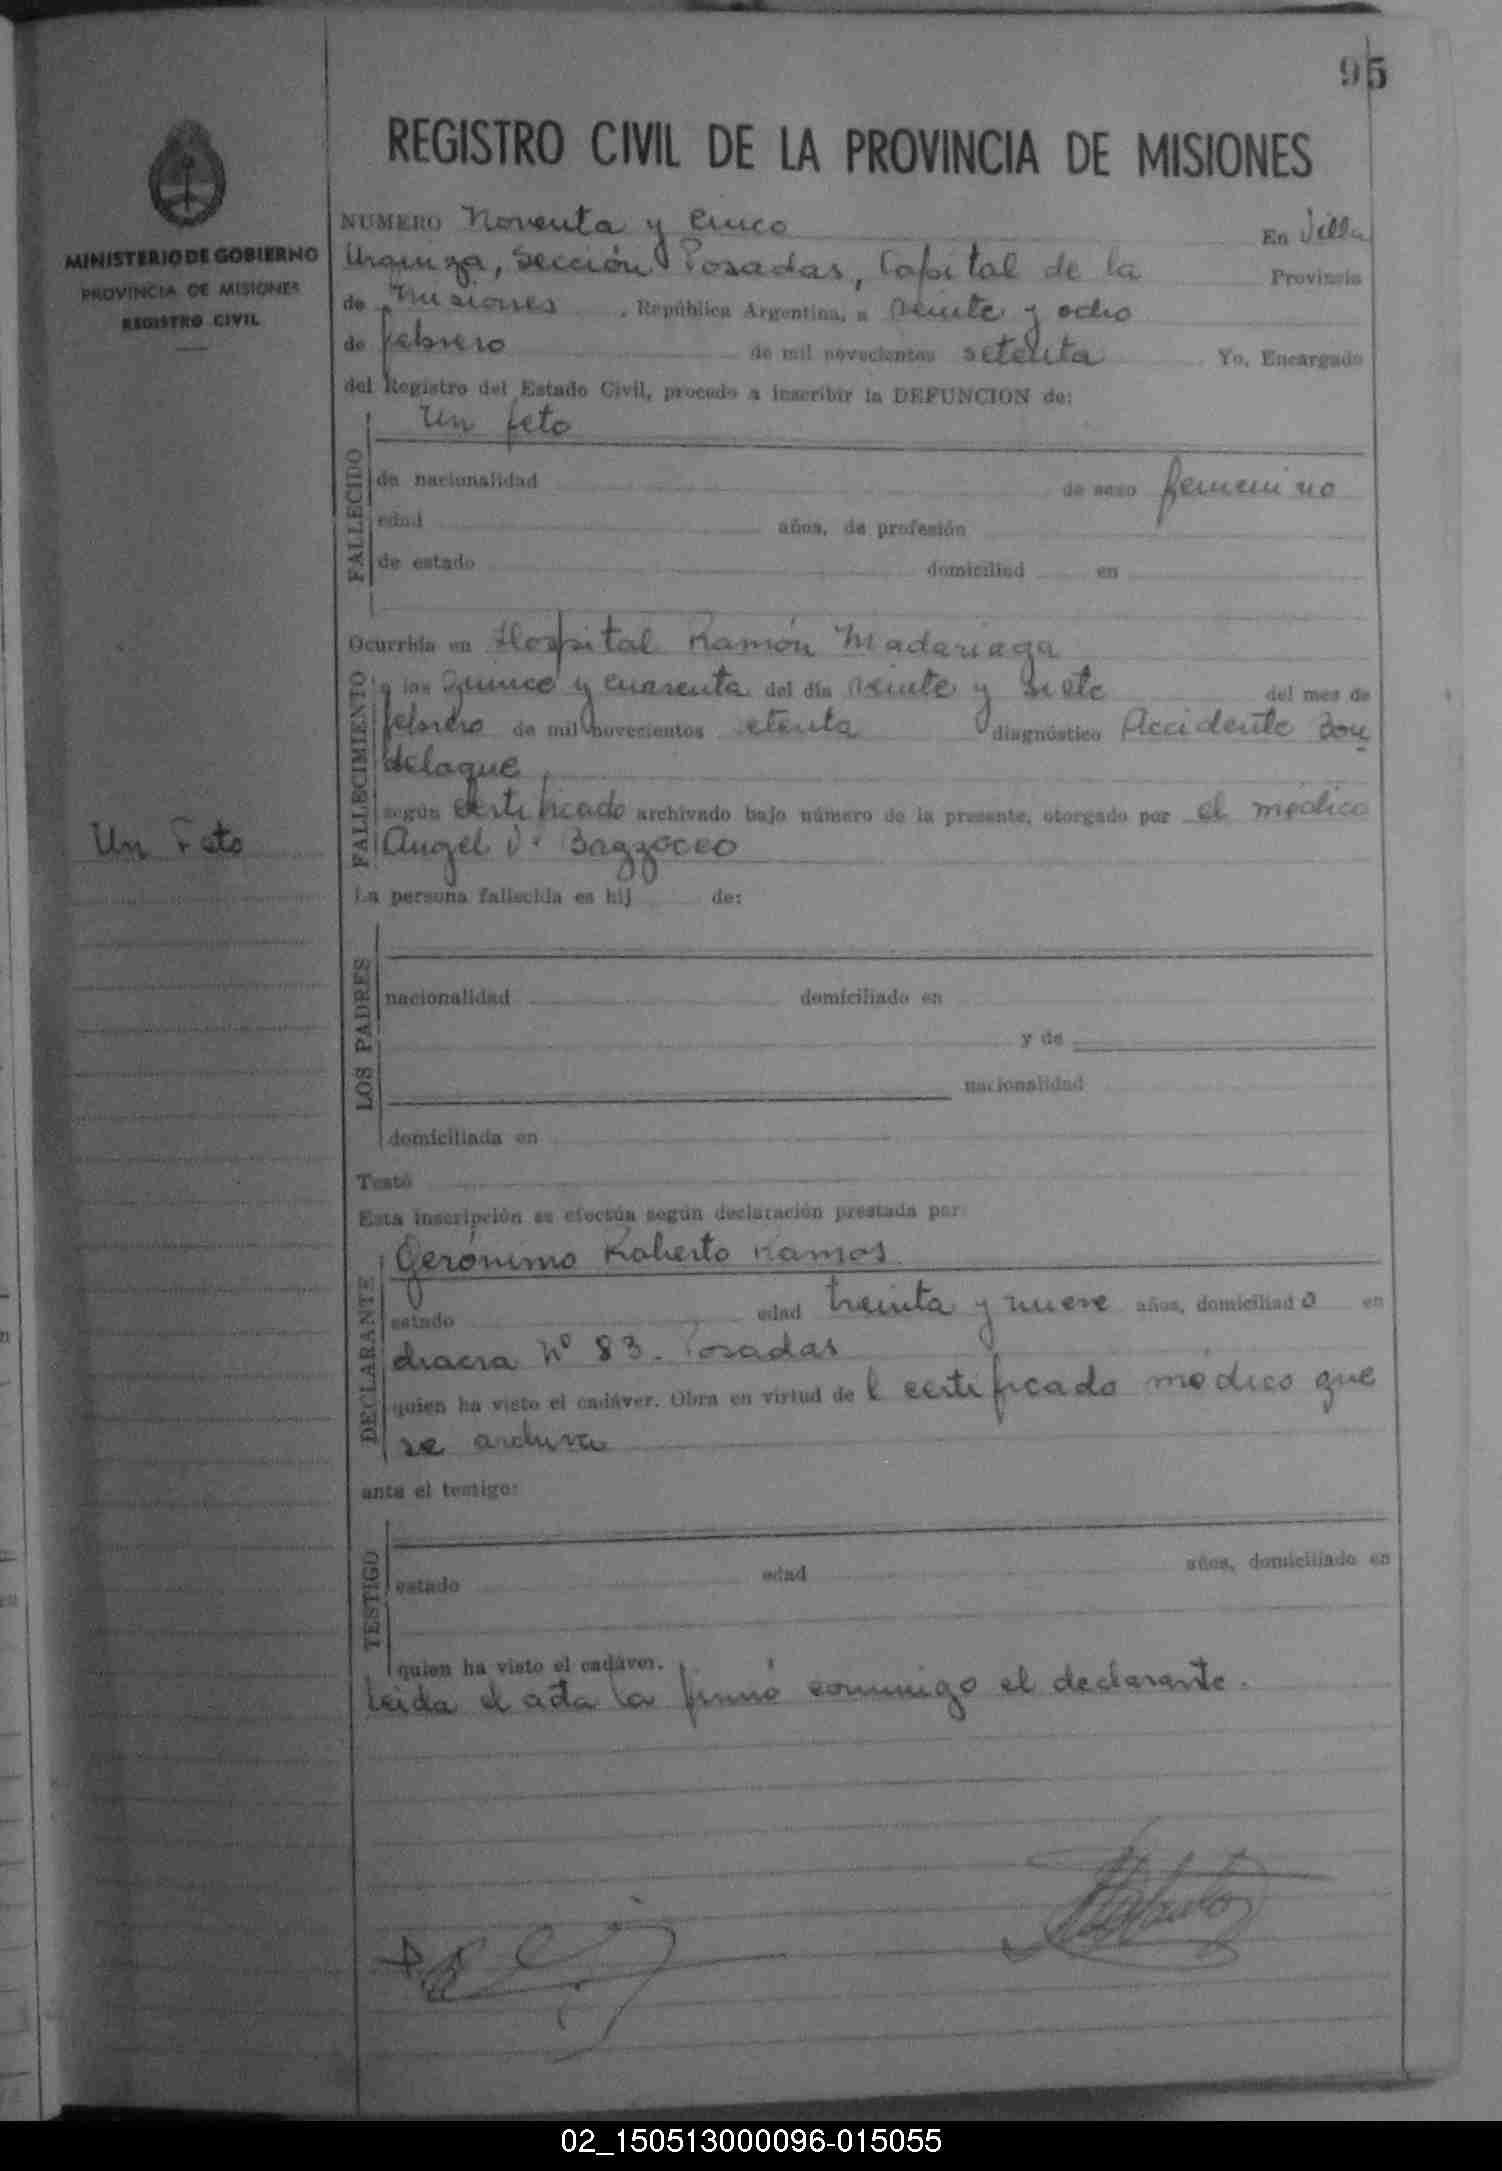 95
REGISTRO CIVIL DE LA PROVINCIA DE MISIONES
MINISTERIO DE GOBIERNO
PROVINCIA DE MISIONES
REGISTRO CIVIL
NUMERO Noventa y Cinco En Villa
Urquiza, Sección Posadas, Capital de la Provincia
de Misiones, República Argentina, a veinte y ocho
de febrero de mil novecientos setenta Yo, Encargado
del Registro del Estado Civil, procedo a inscribir la DEFUNCION de:
FALLECIDO
Un feto
de nacionalidad de sexo femenino
edad años, de profesión
de estado domiciliad en
Ocurrida en Hospital Ramón Madariaga
FALLECIMIENTO
a las quince y cuarenta del día veinte y siete del mes de
febrero de mil novecientos setenta diagnóstico Accidente
según certificado archivado bajo número de la presente, otorgado por el médico
Angel
Un Feto
La persona fallecida es hij de:
LOS PADRES
nacionalidad domiciliado en
y de
nacionalidad
domiciliada en
Testó
Esta inscripción se efectúa según declaración prestada por:
DECLARANTE
Gerónimo Roberto Ramos
estado edad treinta y nueve años, domiciliado en
chacra Nº 83. Posadas
quien ha visto el cadáver. Obra en virtud del certificado médico que
se archiva
ante el testigo:
TESTIGO
estado edad años, domiciliado en
quien ha visto el cadáver.
Leida el acta la firmó conmigo el declarante.
02_150513000096-015055